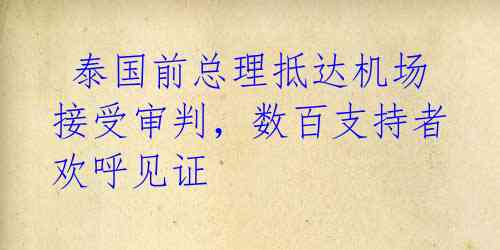 泰国前总理抵达机场
接受审判，数百支持者
欢呼见证